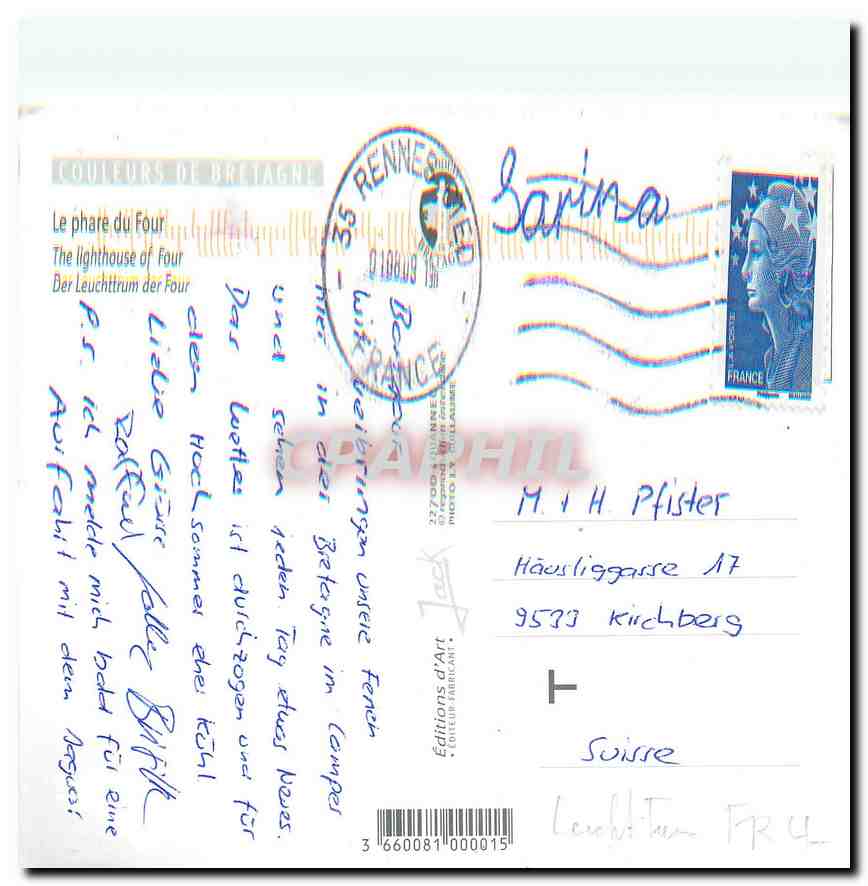 COULEURS DE BRETAGNE
Le phare du Four
The lighthouse of Four
Der Leuchttrum der Four
35 RENNES
FRANCE
Sarina
LA POSTE
FRANCE
Bonjour
Wir verbringen unsere Ferien
hier in der Bretagne im Camper
und sehen jeden Tag etwas Neues.
Das Wetter ist durchzogen und für
den Hochsommer eher kühl.
Liebe Grüsse
P.S. ich melde mich bald für eine
Ausfahrt mit dem
22700 LOUANNEC
© reproduction interdite
PHOTO J.Y. GUILLAUME
Jack
Editions d'Art
• EDITEUR-FABRICANT •
M. + H. Pfister
Häusliggasse 17
9533 Kirchberg
T
Suisse
3 660081 000015
CPAPHIL